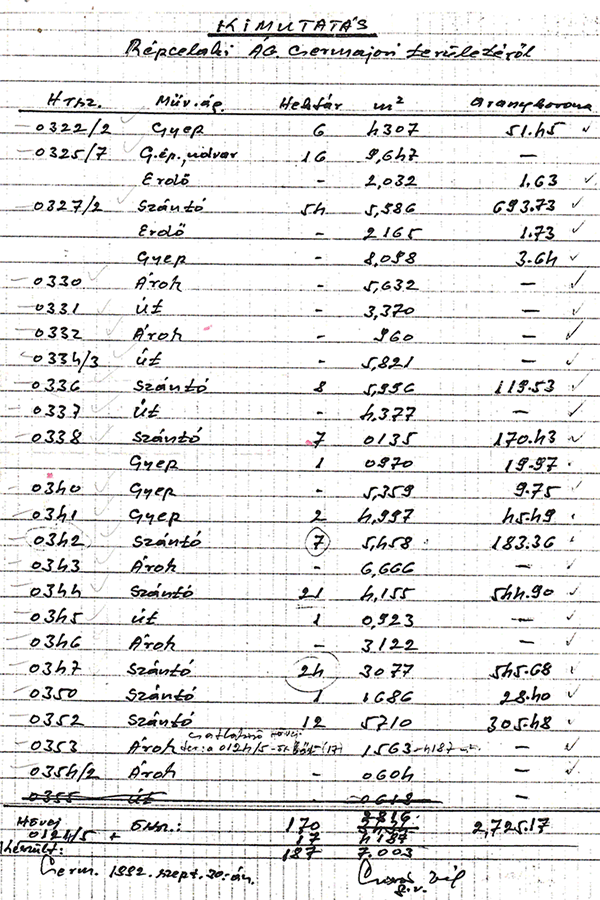 KIMUTATÁS
Répcelaki ÁG. Csermajori területéről
HTSZ. Műv.ág. Hektár m² aranykorona
0322/2 Gyep 6 4307 51.45
0325/7 G.ép., udvar 16 9,647 —
Erdő - 2,032 1.63
0327/2 Szántó 54 5,586 693.73
Erdő - 2165 1.73
Gyep - 8,098 3.64
0330 Árok - 5,632 —
0331 Út - 3,370 —
0332 Árok - 960 —
0334/3 Út - 5,821 —
0336 Szántó 8 5,996 119.53
0337 Út - 4,377 —
0338 Szántó 7 0135 170.43
Gyep 1 0970 19.97
0340 Gyep - 5,359 9.75
0341 Gyep 2 4,997 45.49
0342 Szántó 7 5,458 183.36
0343 Árok - 6,666 —
0344 Szántó 21 4,155 544.90
0345 Út 1 0,923 —
0346 Árok - 3.122 —
0347 Szántó 24 3077 545.68
0350 Szántó 1 1686 28.40
0352 Szántó 12 5710 305.48
0353 Árok 1563 4187 —
0354/2 Árok - 0604 —
0355 Út - 0618 —
Hövej 170 2816 2,725.17
0124/5 + 17 4187
Készült: 187 7.003
Cserm. 1992. szept. 30.-án.